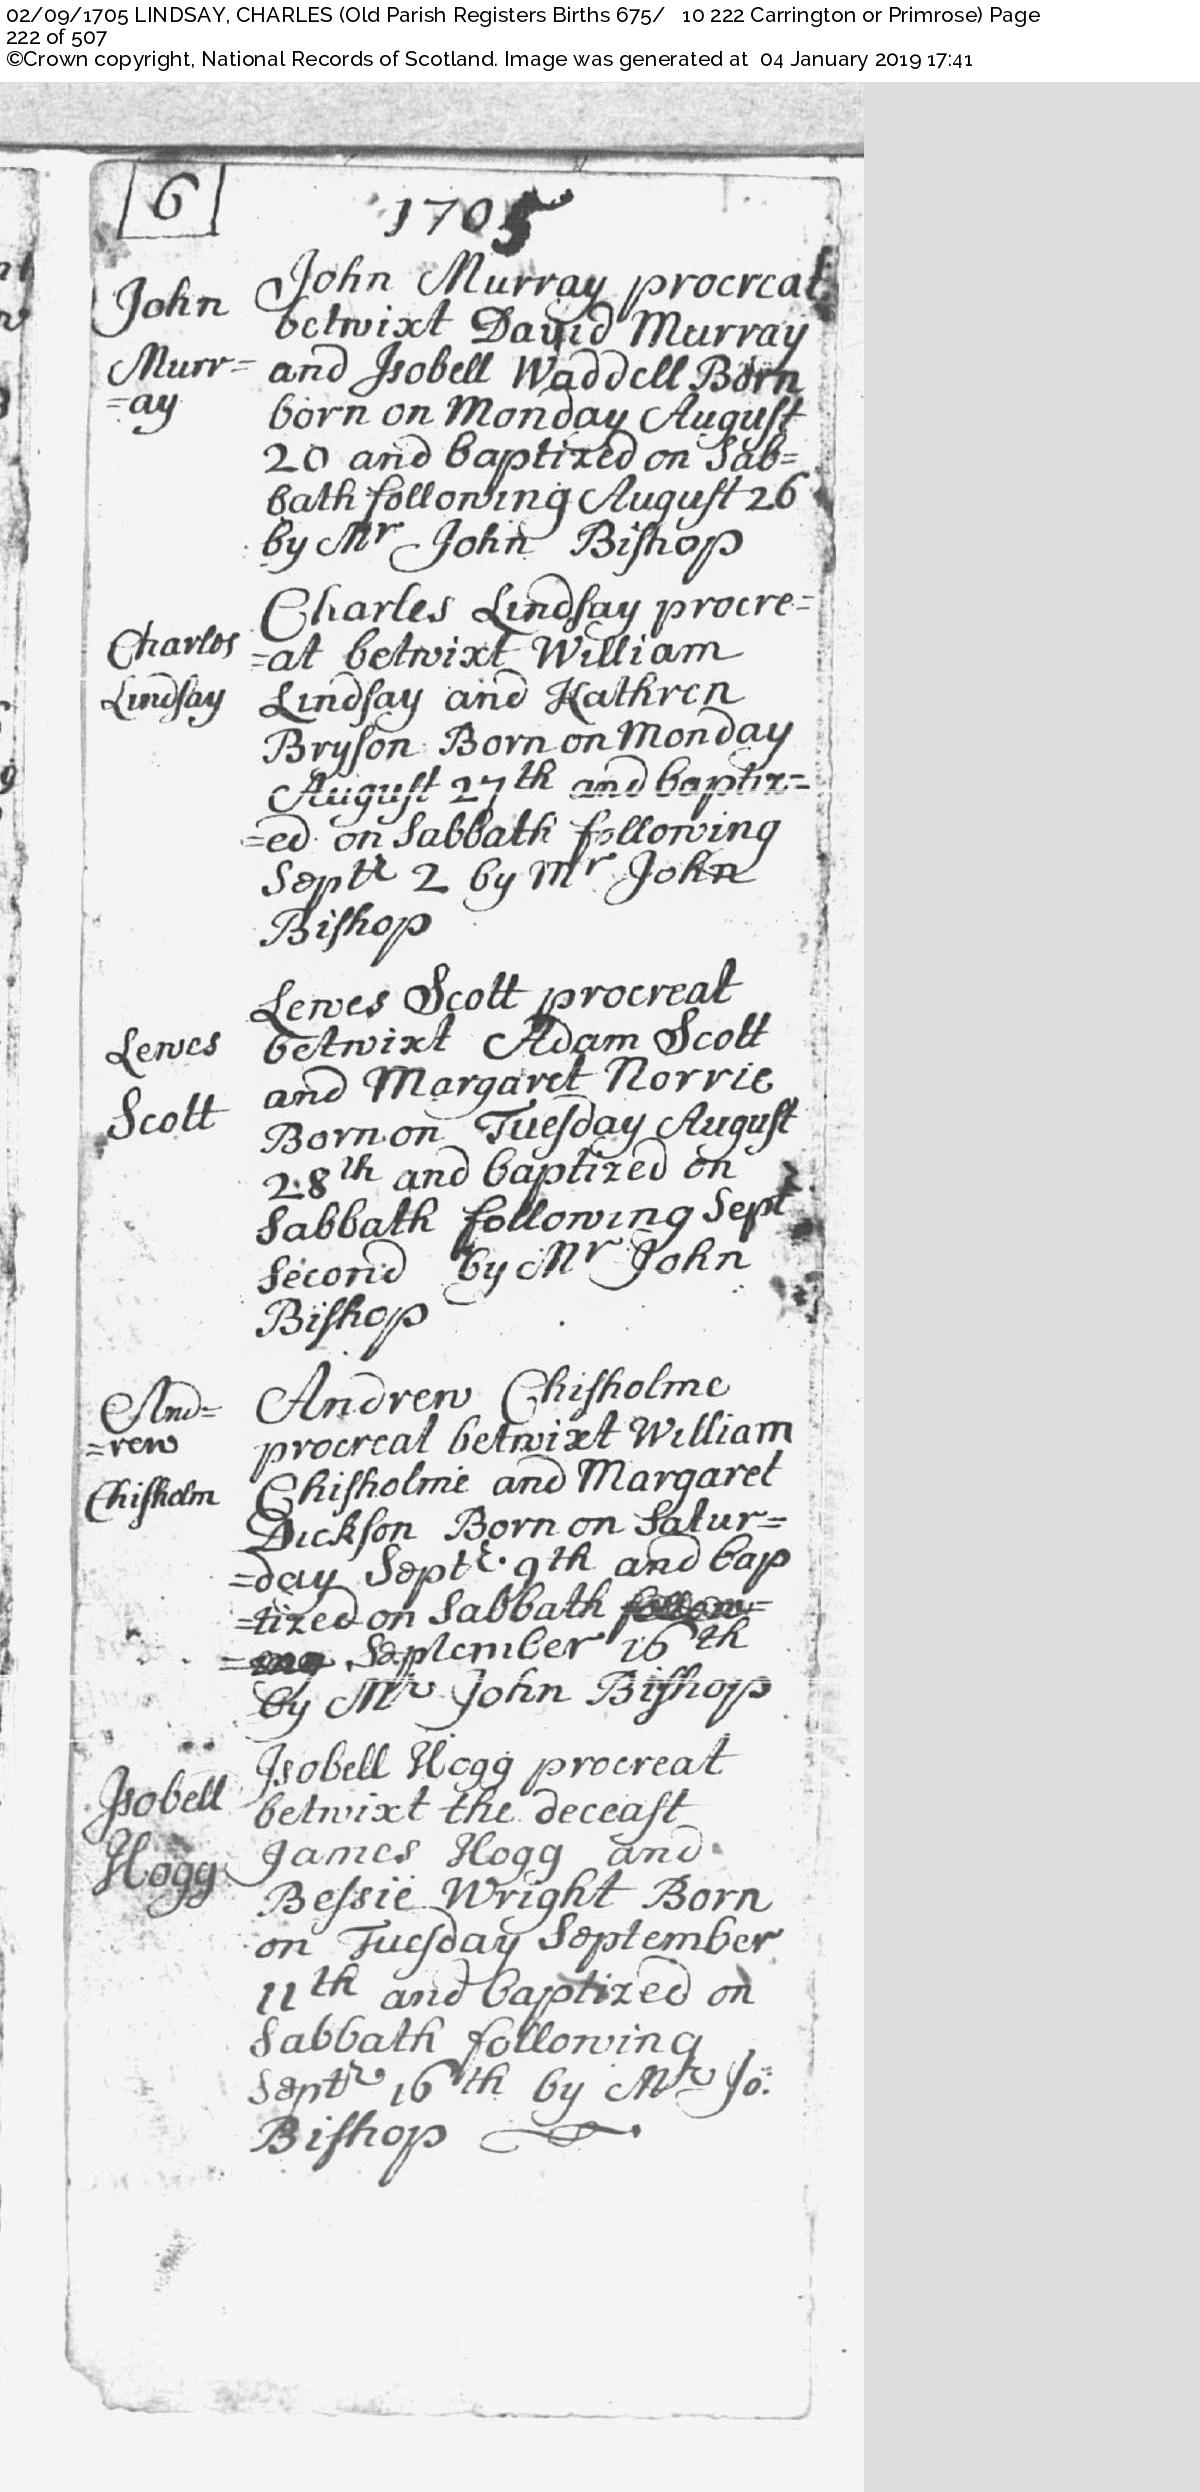 02/09/1705 LINDSAY, CHARLES (Old Parish Registers Births 675/ 10 222 Carrington or Primrose) Page
222 of 507
©Crown copyright, National Records of Scotland. Image was generated at 04 January 2019 17:41
6
1705
John
Murr=
=ay
John Murray procreat
betwixt David Murray
and Isobell Waddell Born
born on Monday August
20 and baptized on Sab=
bath following August 26
by Mr John Bishop
Charles
Lindsay
Charles Lindsay procre=
=at betwixt William
Lindsay and Kathren
Bryson Born on Monday
August 27th and baptiz=
=ed on Sabbath following
Septr 2 by Mr John
Bishop
Lewes
Scott
Lewes Scott procreat
betwixt Adam Scott
and Margaret Norrie
Born on Tuesday August
28th and baptized on
Sabbath following Sept
Second by Mr John
Bishop
And=
=rew
Chisholm
Andrew Chisholme
procreat betwixt William
Chisholme and Margaret
Dickson Born on Satur=
=day Septr. 9th and bap
=tized on Sabbath follow=
=ing September 16th
by Mr John Bishop
Isobell
Hogg
Isobell Hogg procreat
betwixt the deceast
James Hogg and
Bessie Wright Born
on Tuesday September
11th and baptized on
Sabbath following
Septr 16th by Mr Jo:
Bishop